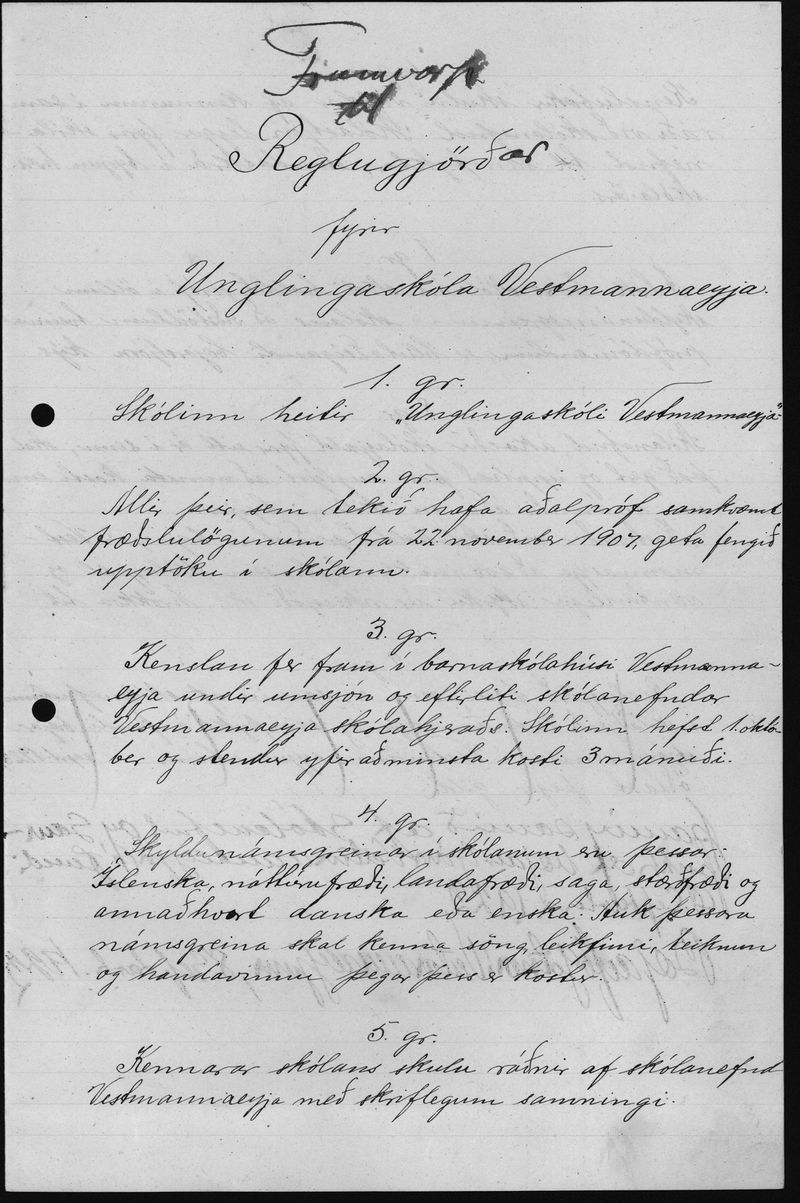 Frumvarp
til
Reglugjörðar
fyrir
Unglingaskóla Vestmannaeyja.
1. gr.
Skólinn heitir „Unglingaskóli Vestmannaeyja“.
2. gr.
Allir þeir, sem tekið hafa aðalpróf samkvæmt
fræðslulögunum frá 22. november 1907, geta fengið
upptöku í skólann.
3. gr.
Kenslan fer fram í barnaskólahúsi Vestmanna-
eyja undir umsjón og eftirliti skólanefndar
Vestmannaeyja skólahjeraðs. Skólinn hefst 1. októ-
ber og stendur yfir að minsta kosti 3 mánuði.
4. gr.
Skyldunámsgreinar í skólanum eru þessar:
Íslenska, náttúrufræði, landafræði, saga, stærðfræði og
annaðhvort danska eða enska. Auk þessara
námsgreina skal kenna söng, leikfimi, teiknun
og handavinnu þegar þess er kostur.
5. gr.
Kennarar skólans skulu ráðnir af skólanefnd
Vestmannaeyja með skriflegum samningi.